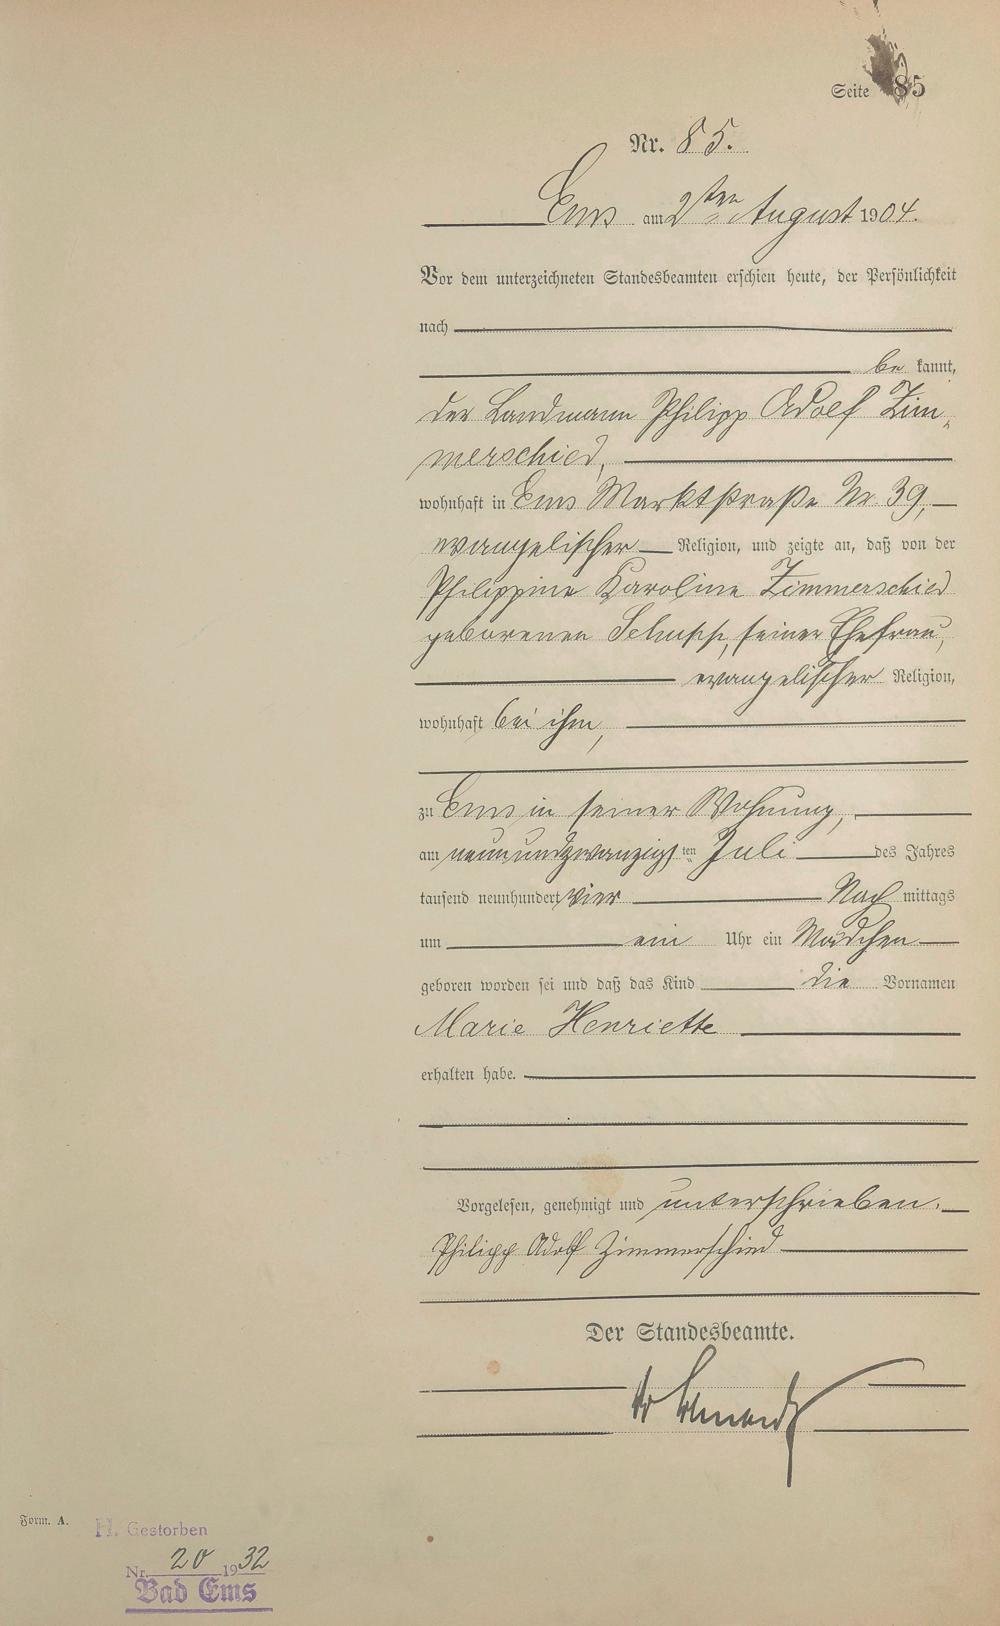 Seite 85
Nr. 85.
Ems am 2ten August 1904.
Vor dem unterzeichneten Standesbeamten erschien heute, der Persönlichkeit
nach
be kannt,
der Landmann Philipp Adolf Zim-
merschied,
wohnhaft in Ems Marktstraße Nr. 39,
evangelischer Religion, und zeigte an, daß von der
Philippine Karoline Zimmerschied
geborenen Schupp, seiner Ehefrau,
evangelischer Religion,
wohnhaft bei ihm,
zu Ems in seiner Wohnung,
am neunundzwanzigsten Juli des Jahres
tausend neunhundert vier Nach mittags
um ein Uhr ein Mädchen
geboren worden sei und daß das Kind die Vornamen
Marie Henriette
erhalten habe.
Vorgelesen, genehmigt und unterschrieben.
Philipp Adolf Zimmerschied
Der Standesbeamte.
Form. A.
H. Gestorben
Nr. 20 1932
Bad Ems